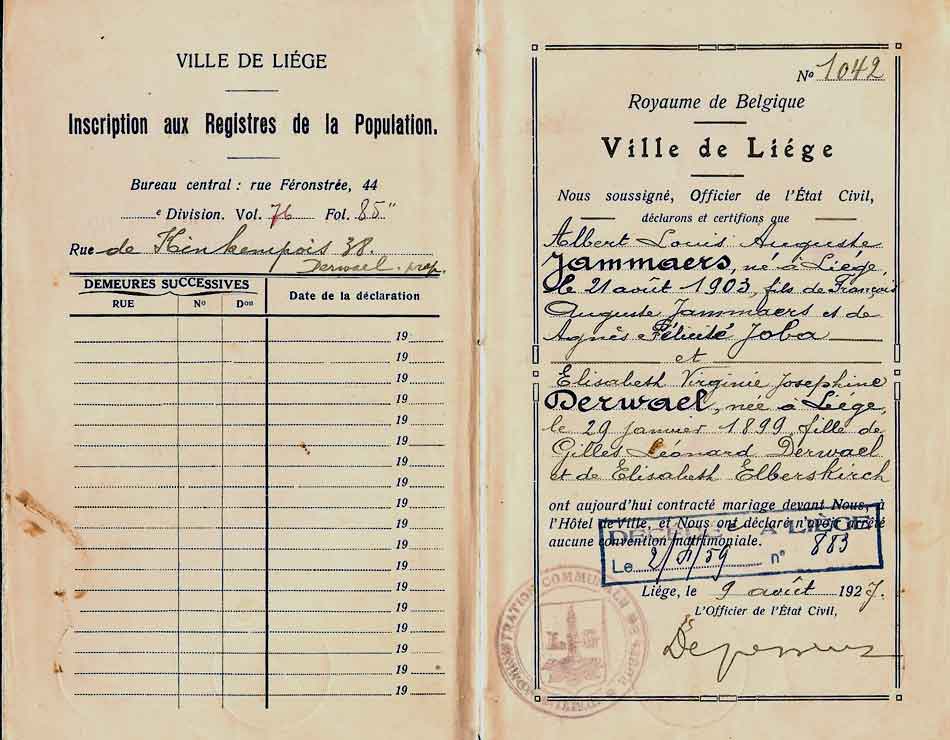 VILLE DE LIÉGE
Inscription aux Registres de la Population.
Bureau central : rue Féronstrée, 44
e Division. Vol. 76 Fol. 85"
Rue de Kinkempois 38.
Derwael. prop.
DEMEURES SUCCESSIVES
RUE No Don Date de la déclaration
19
19
19
19
19
19
19
19
19
19
19
19
19
19
19
19
19
19
No 1042
Royaume de Belgique
Ville de Liége
Nous soussigné, Officier de l'État Civil,
déclarons et certifions que
Albert Louis Auguste
Jammaers, né à Liége,
le 21 août 1903, fils de François
Auguste Jammaers et de
Agnès Félicité Joba
et
Elisabeth Virginie Josephine
Derwael, née à Liége,
le 29 janvier 1899, fille de
Gilles Léonard Derwael
et de Elisabeth Elberskirch
ont aujourd'hui contracté mariage devant Nous, à
l'Hôtel de Ville, et Nous ont déclaré n'avoir arrêté
aucune convention matrimoniale.
A LIÈGE
Le 2/ /59 n° 883
Liége, le 9 août 1927.
L'Officier de l'État Civil,
ADMINISTRATION COMMUNALE DE LIÉGE